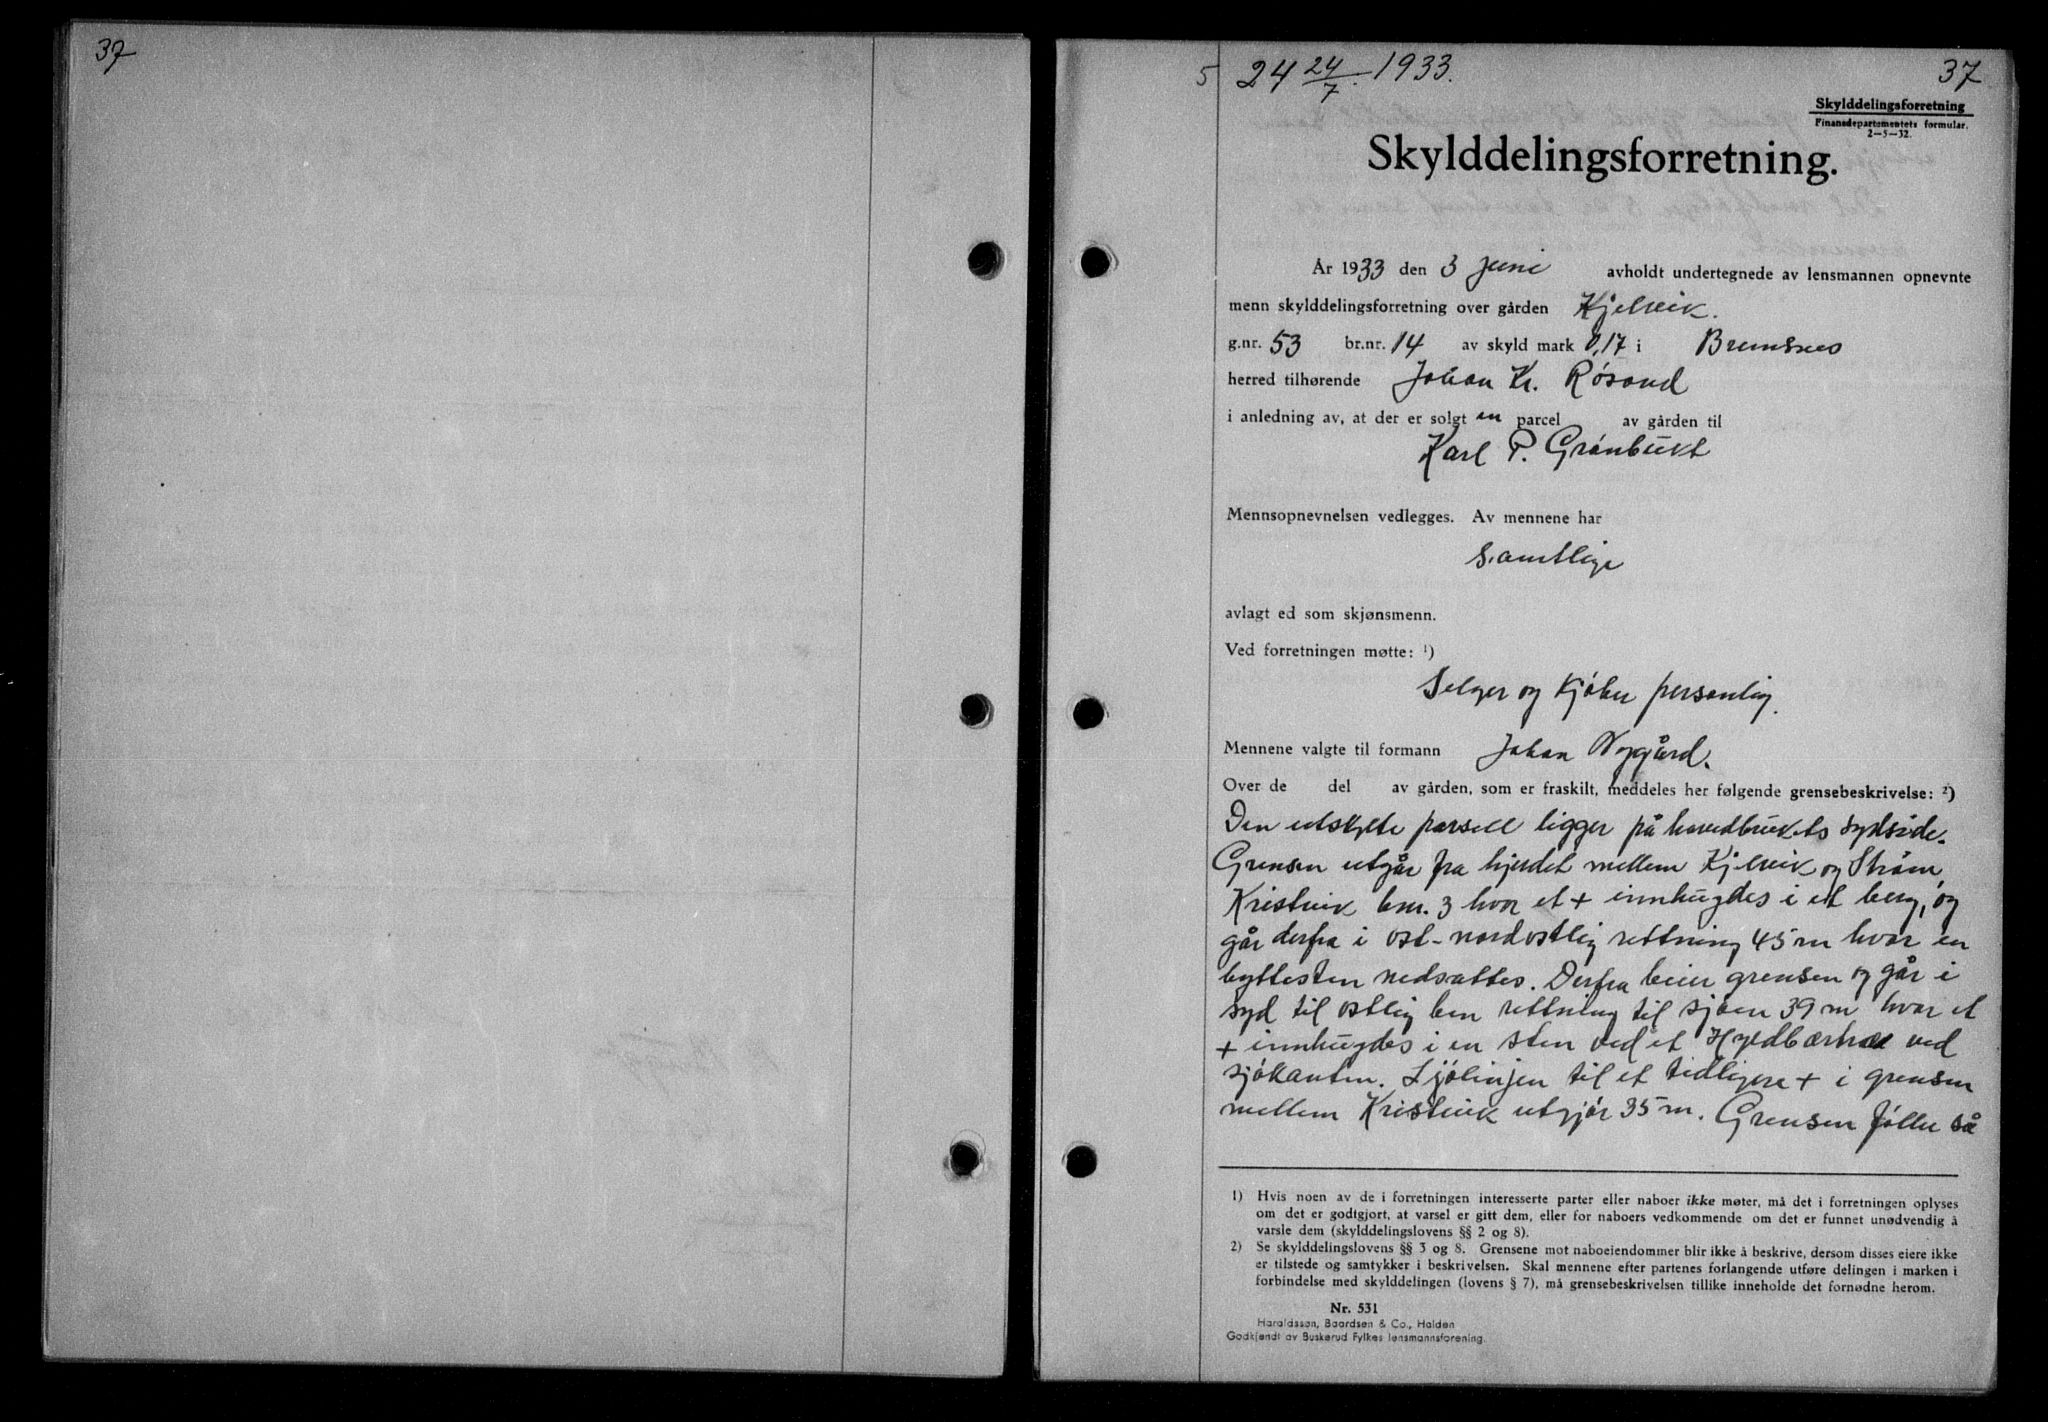 37
5 24 24/7. 1933.
37
Skylddelingsforretning
Finansdepartementets formular.
2—5—32.
Skylddelingsforretning.
År 1933 den 3 juni avholdt undertegnede av lensmannen opnevnte
menn skylddelingsforretning over gården Kjelvik.
g.nr. 53 br.nr. 14 av skyld mark 0,17 i Bremsnes
herred tilhørende Johan Kr. Røsand
i anledning av, at der er solgt en parcel av gården til
Karl P. Grønbukt
Mennsopnevnelsen vedlegges. Av mennene har
samtlige
avlagt ed som skjønsmenn.
Ved forretningen møtte: 1)
Selger og kjøber personlig.
Mennene valgte til formann Johan Nygård.
Over de del av gården, som er fraskilt, meddeles her følgende grensebeskrivelse: 2)
Den utskylte parsell ligger på hovedbrukets sydside.
Grensen utgår fra gjerdet mellem Kjelvik og Strøm,
Kristvik bnr. 3 hvor et + innhugdes i et berg, og
går derfra i ost-nordostlig rettning 45 m hvor en
byttesten nedsattes. Derfra beier grensen og går i
syd til ostlig ben rettning til sjøen 39 m hvor et
+ innhugdes i en sten ved et Hyldbærtræ ved
sjøkanten. Sjølinjen til et tidligere + i grensen
mellem Kristvik utgjør 35 m. Grensen føller så
1) Hvis noen av de i forretningen interesserte parter eller naboer ikke møter, må det i forretningen oplyses
om det er godtgjort, at varsel er gitt dem, eller for naboers vedkommende om det er funnet unødvendig å
varsle dem (skylddelingslovens §§ 2 og 8).
2) Se skylddelingslovens §§ 3 og 8. Grensene mot naboeiendommer blir ikke å beskrive, dersom disses eiere ikke
er tilstede og samtykker i beskrivelsen. Skal mennene efter partenes forlangende utføre delingen i marken i
forbindelse med skylddelingen (lovens § 7), må grensebeskrivelsen tillike inneholde det fornødne herom.
Nr. 531
Haraldssøn, Baardsen & Co., Halden
Godkjendt av Buskerud Fylkes lensmannsforening.